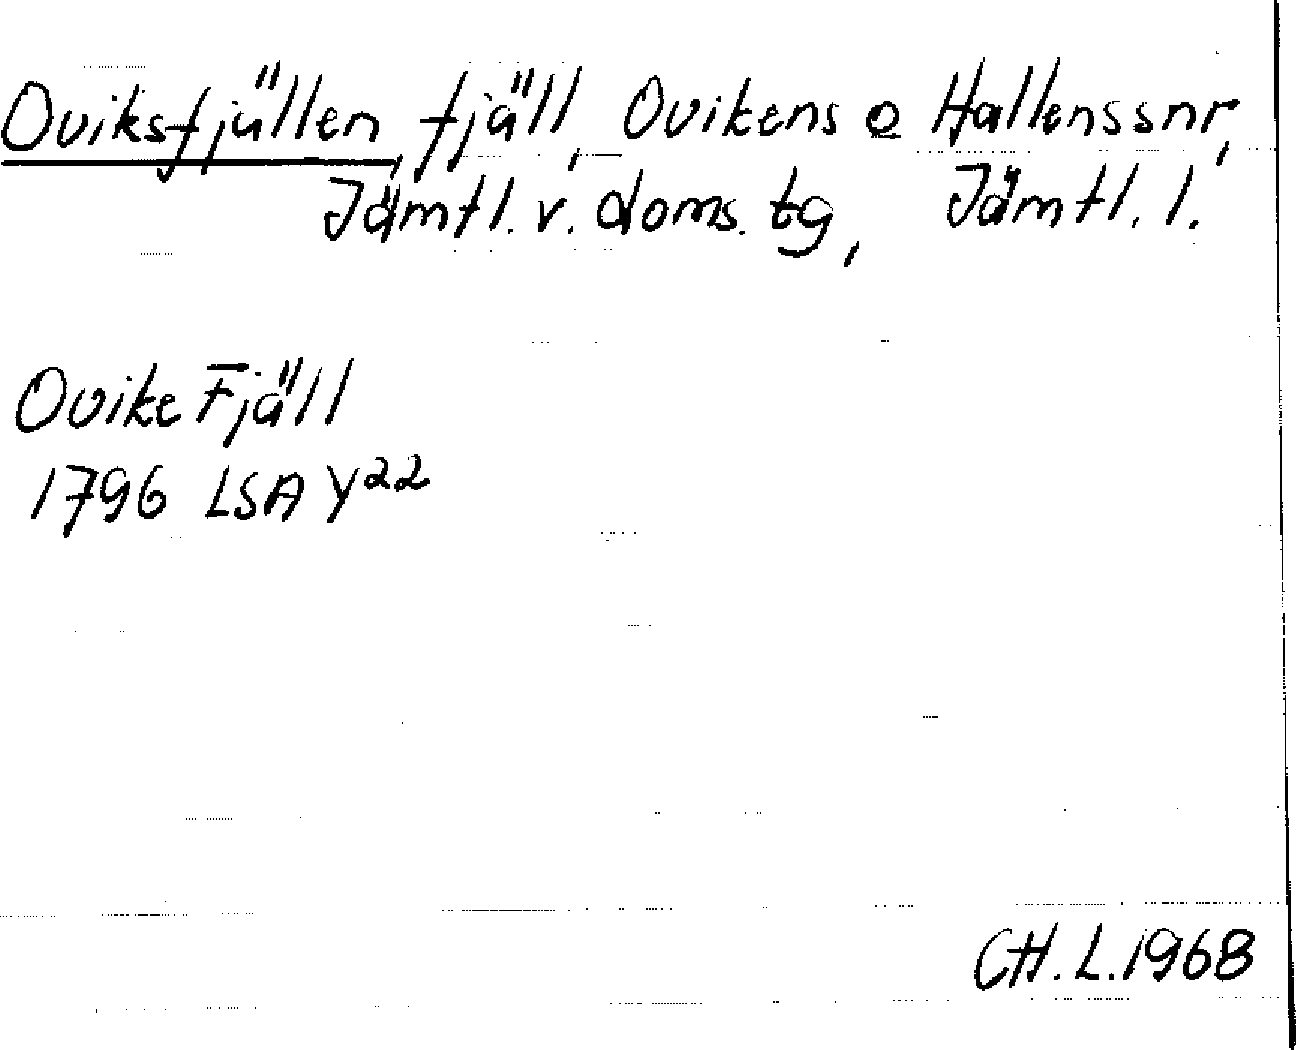 Oviksfjällen, fjäll, Ovikens o Hallens snr,
Jämtl. v. doms. tg, Jämtl. l.
Ovike Fjäll
1796 LSA Y22
CH. L. 1968